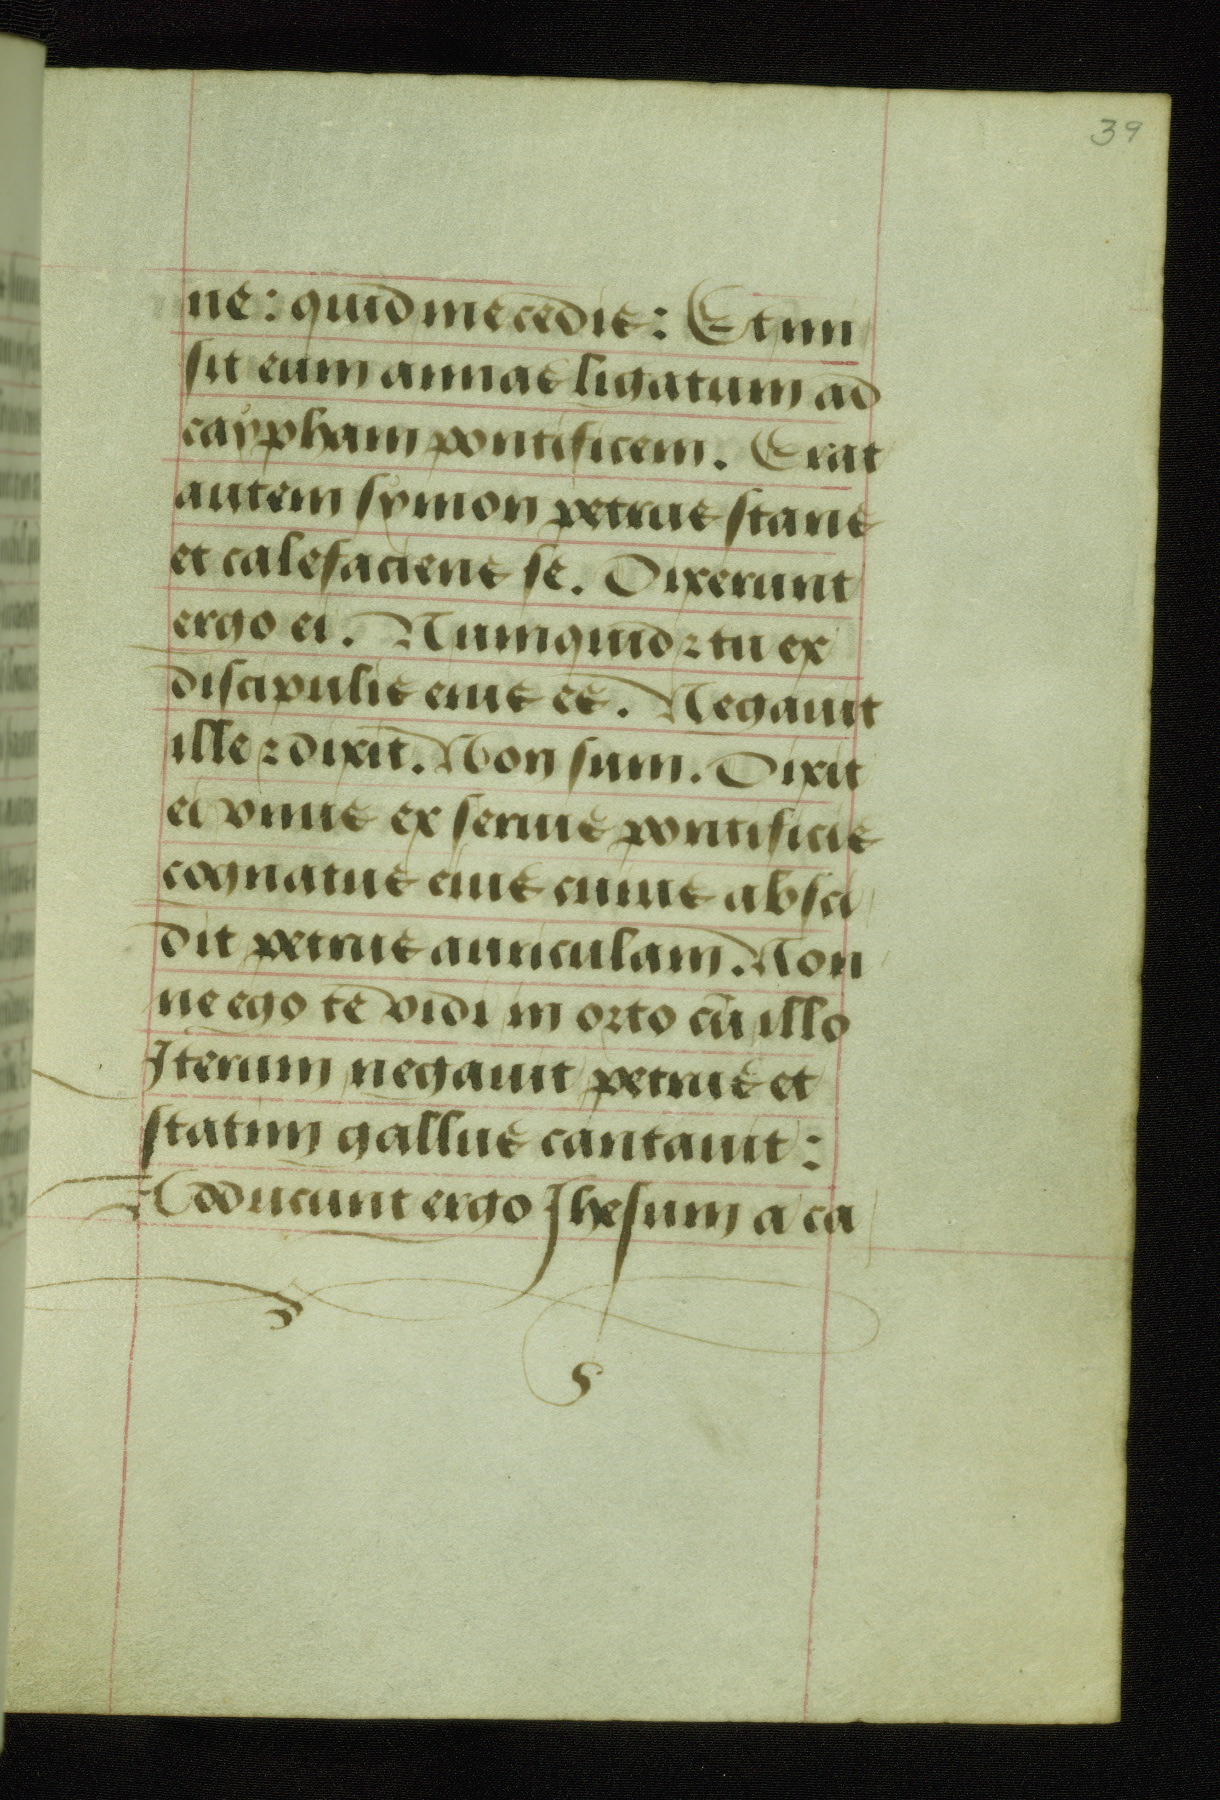 39
ne: quid me cedis: Et mi
sit eum annas ligatum ad
caypham pontificem. Erat
autem symon petrus stans
et calefaciens se. Dixerunt
ergo ei. Numquid ⁊ tu ex
discipulis eius es. Negauit
ille ⁊ dixit. Non sum. Dixit
ei vnus ex seruis pontificis
cognatus eius cuius absci
dit petrus auriculam. Non
ne ego te vidi in orto cū illo
Iterum negauit petrus et
statim gallus cantauit:
Adducunt ergo Jhesum a ca